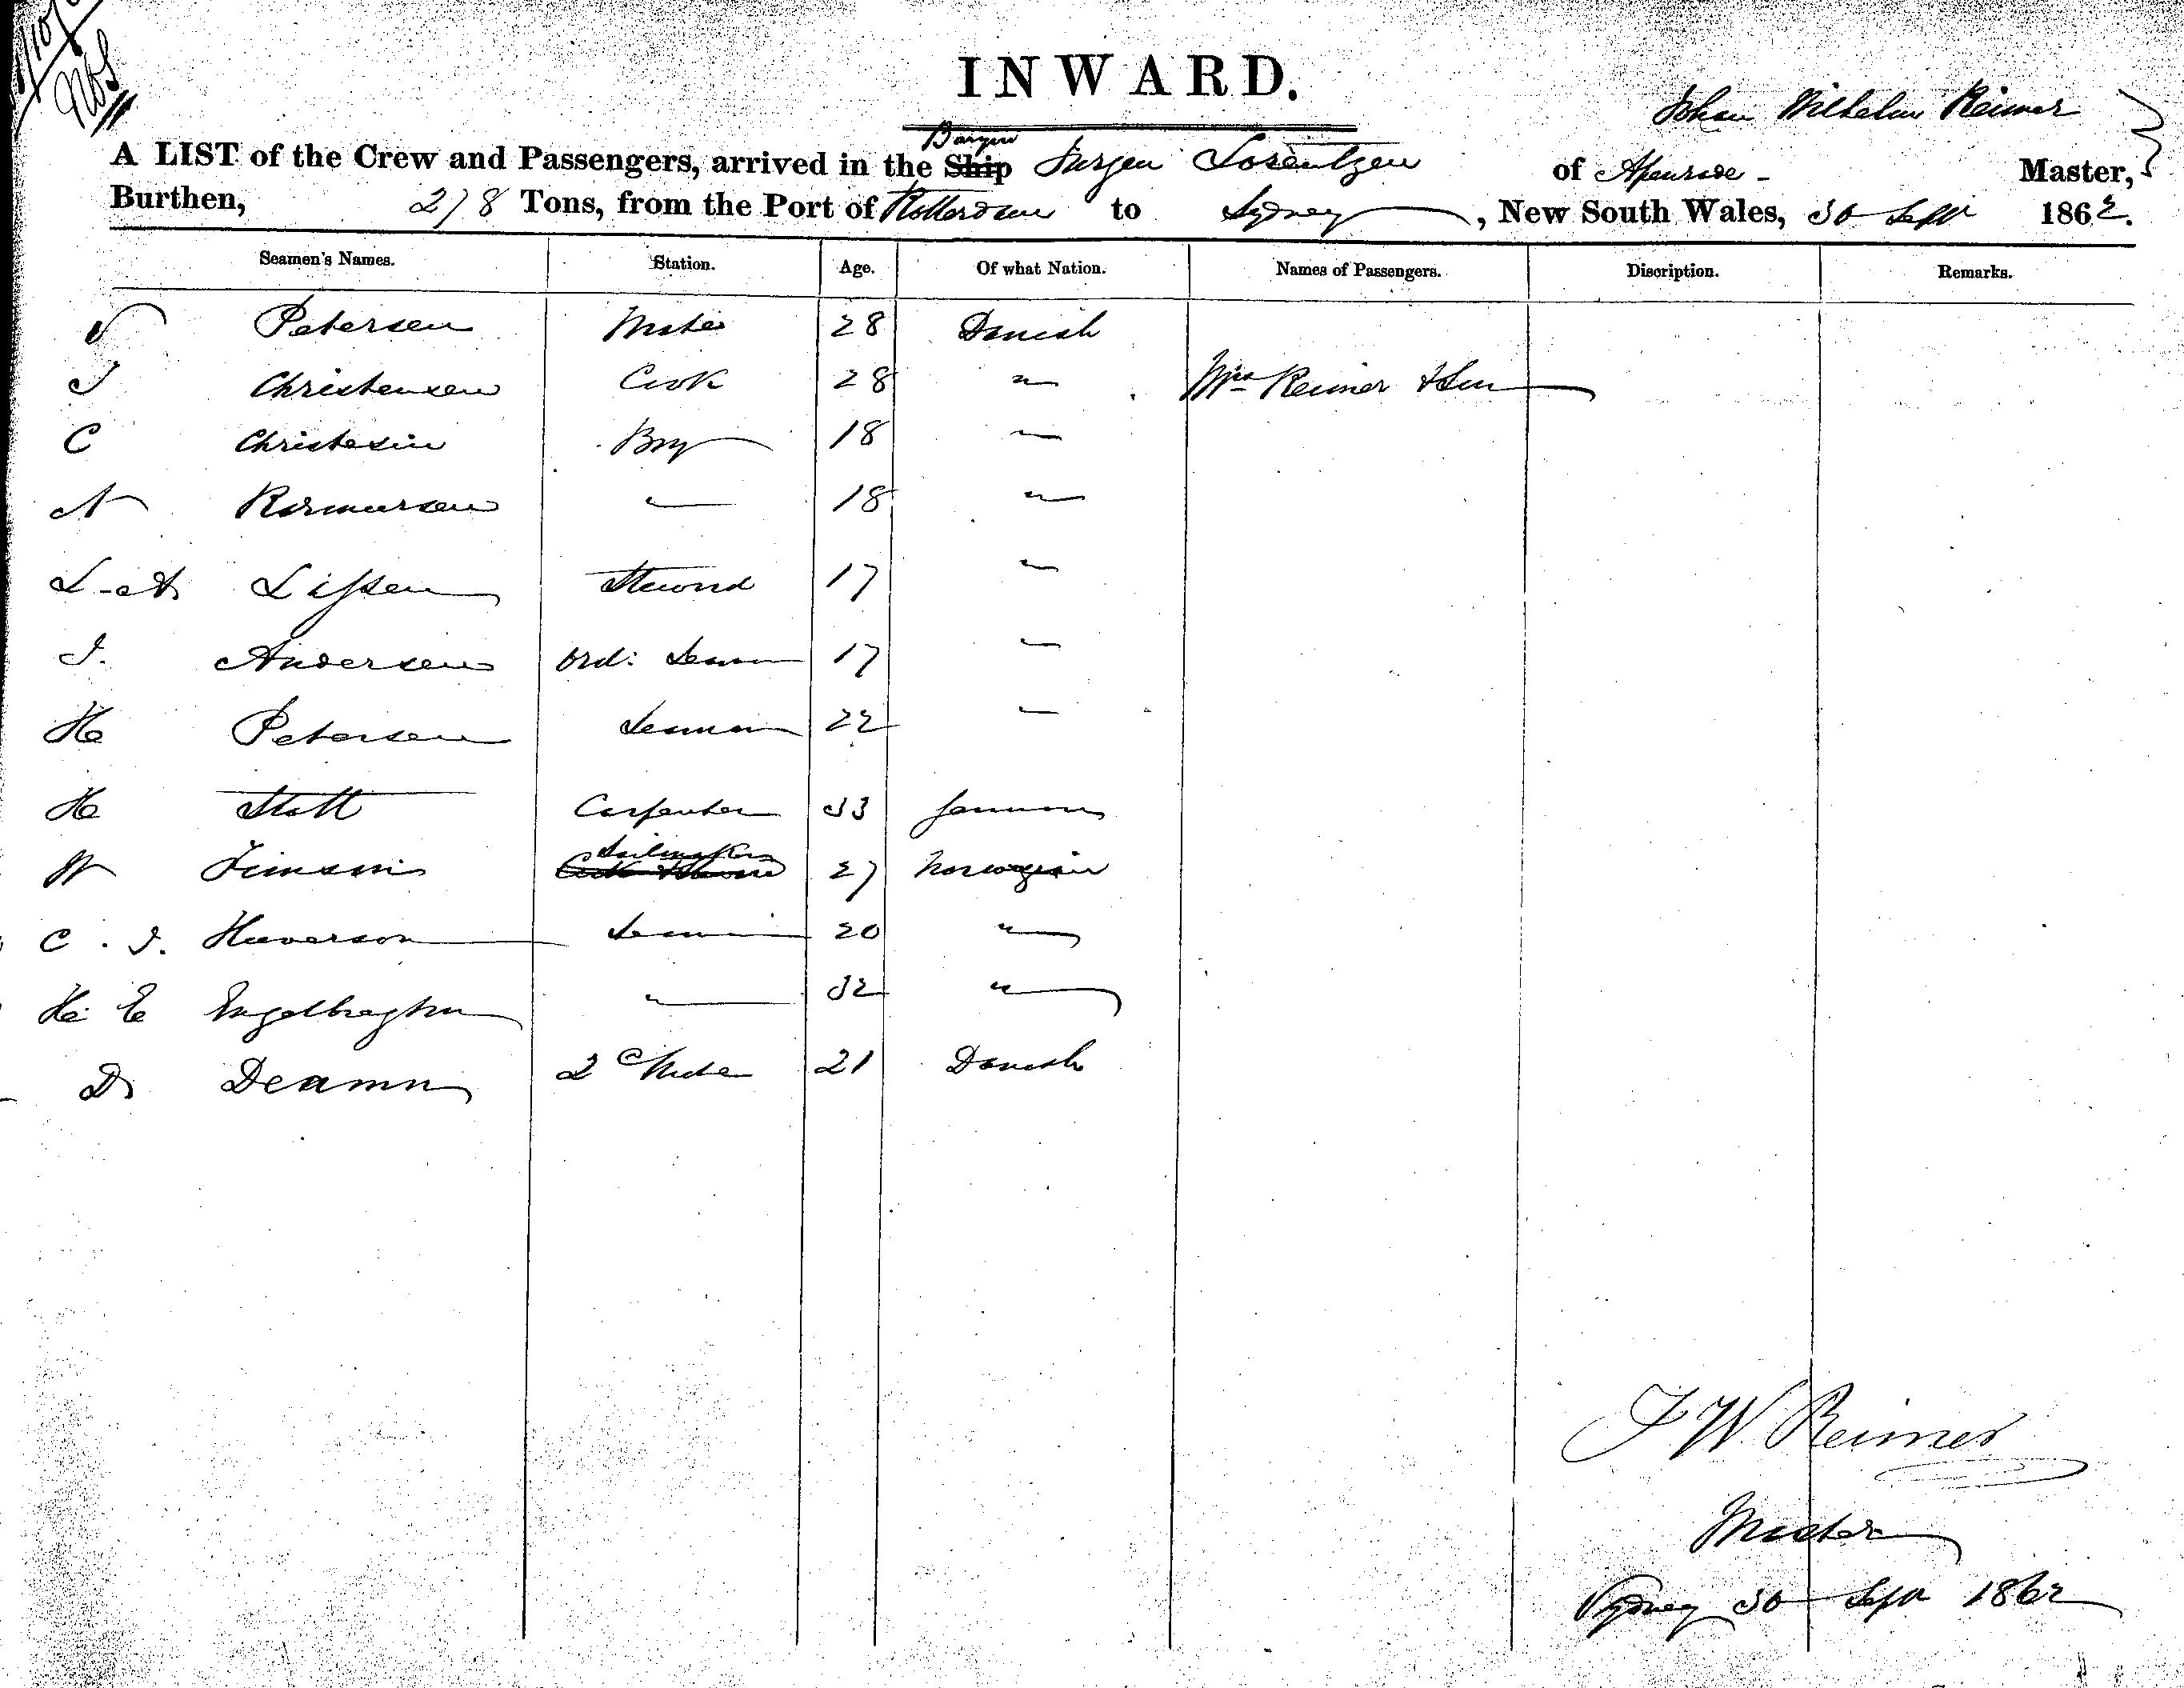 INWARD.
Johan Wilhelm Reimer
Barque
A LIST of the Crew and Passengers, arrived in the Ship Jurgen Lorentzen of Apenrade - Master,
Burthen, 278 Tons, from the Port of Rotterdam to Sydney, New South Wales, 30 Sepr 1862.
Seamen's Names. Station. Age. Of what Nation. Names of Passengers. Discription. Remarks.
Petersen Mate 28 Danish
J Christensen Cook 28 " Mrs Reimer & Son
C Christesin Boy 18 "
N Rasmussen " 18 "
L. A. Lassen Steward 17 "
J. Andersen Ord: Seaman 17 "
H Petersen Seaman 22 "
H Stott Carpenter 33 German
Sailmaker
W Cook & 27 Norwegian
C. J. Seaman 20 "
H. E " 32 "
D Deamn 2d Mate 21 Danish
J W Reimer
Master
Sydney 30 Sepr 1862